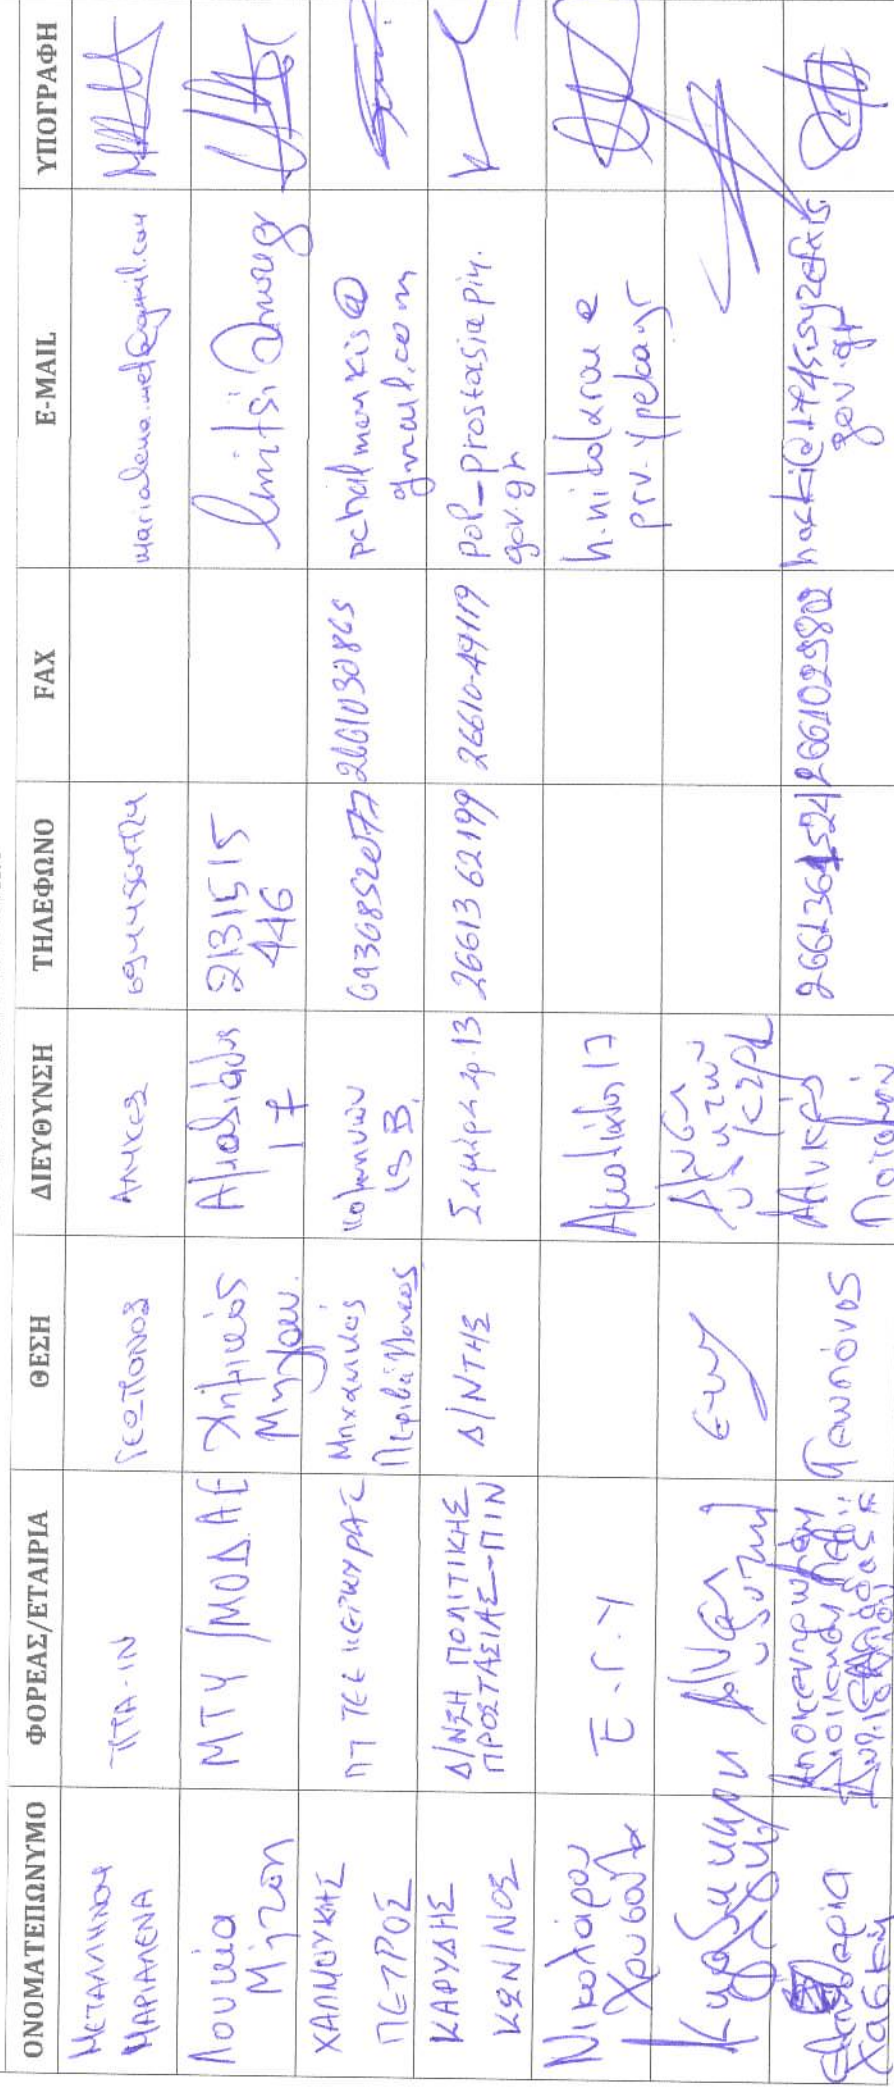 ΟΝΟΜΑΤΕΠΩΝΥΜΟ ΦΟΡΕΑΣ/ΕΤΑΙΡΙΑ ΘΕΣΗ ΔΙΕΥΘΥΝΣΗ ΤΗΛΕΦΩΝΟ FAX E-MAIL ΥΠΟΓΡΑΦΗ
ΜΕΤΑΛΛΗΝΟΥ
ΜΑΡΙΑΛΕΝΑ
ΠΤΑ-ΙΝ
ΓΕΩΠΟΝΟΣ
ΑΛΥΚΕΣ
Λουκία
Μήτση
ΜΤΥ /ΜΟΔ ΑΕ
Χημικός
Μηχαν.
Αμαλιάδος
17
2131515
446
lmitsi@mou.gr
ΧΑΛΜΟΥΚΗΣ
ΠΕΤΡΟΣ
ΠΤ ΤΕΕ ΚΕΡΚΥΡΑΣ
Μηχανικός
Περιβάλλοντος
Κομνηνών
15 Β.
6936852077
2661030865
pchalmoukis@
gmail.com
ΚΑΡΥΔΗΣ
ΚΩΝ/ΝΟΣ
Δ/ΝΣΗ ΠΟΛΙΤΙΚΗΣ
ΠΡΟΣΤΑΣΙΑΣ-ΠΙΝ
Δ/ΝΤΗΣ
Σαμάρα αρ. 13
26613 62199
26610-49119
pol_prostasia@pin.
gov.gr
Νικολάρου
Χρυσούλα
Ε.Γ.Υ
Αμαλιάδος 17
h.nikolarou@
prv.ypeka.gr
Ελευθερία
Χασκή
Αποκεντρωμένη
Γεωπόνος
Αλυκές
Ποταμού
2661029802
gov.gr